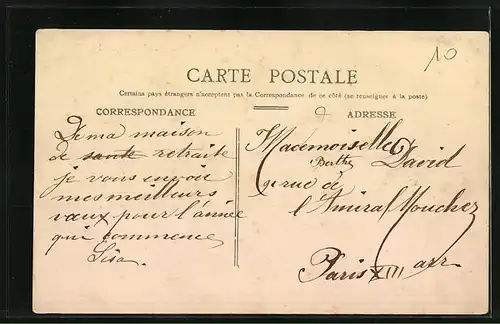 10
CARTE POSTALE
Certains pays étrangers n'acceptent pas la Correspondance de ce côté (se renseigner à la poste)
CORRESPONDANCE
De ma maison
de santé retraite
je vous envoie
mes meilleurs
vœux pour l'année
qui commence
Lisa.
ADRESSE
Mademoiselle
Berthe David
9 rue de
l'Amiral Mouchez
Paris XIII arr